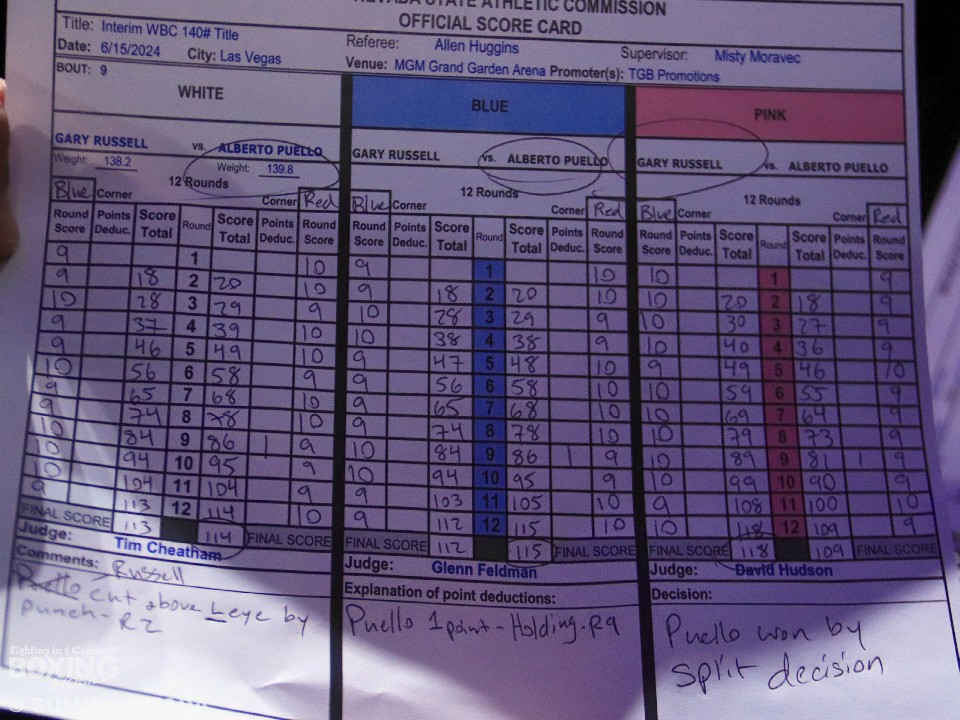 NEVADA STATE ATHLETIC COMMISSION
OFFICIAL SCORE CARD
Title: Interim WBC 140# Title Referee: Allen Huggins Supervisor: Misty Moravec
Date: 6/15/2024 City: Las Vegas Venue: MGM Grand Garden Arena Promoter(s): TGB Promotions
BOUT: 9
WHITE BLUE PINK
GARY RUSSELL vs. ALBERTO PUELLO GARY RUSSELL vs. ALBERTO PUELLO GARY RUSSELL vs. ALBERTO PUELLO
Weight: 138.2 Weight: 139.8
12 Rounds 12 Rounds 12 Rounds
Blue Corner Corner Red Blue Corner Corner Red Blue Corner Corner Red
Round Score Points Deduc. Score Total Round Score Total Points Deduc. Round Score Round Score Points Deduc. Score Total Round Score Total Points Deduc. Round Score Round Score Points Deduc. Score Total Round Score Total Points Deduc. Round Score
9 1 10 9 1 10 10 1 9
9 18 2 20 10 9 18 2 20 10 10 20 2 18 9
10 28 3 29 9 10 28 3 29 9 10 30 3 27 9
9 37 4 39 10 10 38 4 38 9 10 40 4 36 9
9 46 5 49 10 9 47 5 48 10 9 49 5 46 10
10 56 6 58 9 9 56 6 58 10 10 59 6 55 9
9 65 7 68 10 9 65 7 68 10 10 69 7 64 9
9 74 8 78 10 9 74 8 78 10 10 79 8 73 9
10 84 9 86 1 9 10 84 9 86 1 9 10 89 9 81 1 9
10 94 10 95 9 10 94 10 95 9 10 99 10 90 9
10 104 11 104 9 9 103 11 105 10 9 108 11 100 10
9 113 12 114 10 9 112 12 115 10 10 118 12 109 9
FINAL SCORE 113 114 FINAL SCORE FINAL SCORE 112 115 FINAL SCORE FINAL SCORE 118 109 FINAL SCORE
Judge: Tim Cheatham Judge: Glenn Feldman Judge: David Hudson
Comments: Explanation of point deductions: Decision:
Russell
Puello cut above L eye by
punch - R2
Puello 1 point - Holding - R9
Puello won by
split decision
Fighting in 4 Corners!
BOXING